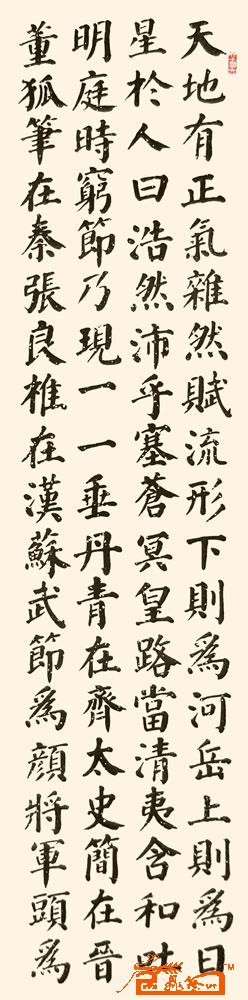 天地有正氣雜然賦流形下則爲河岳上則爲日
星於人曰浩然沛乎塞蒼冥皇路當清夷含和吐
明庭時窮節乃現一一垂丹青在齊太史簡在晉
董狐筆在秦張良椎在漢蘇武節爲顏將軍頭爲